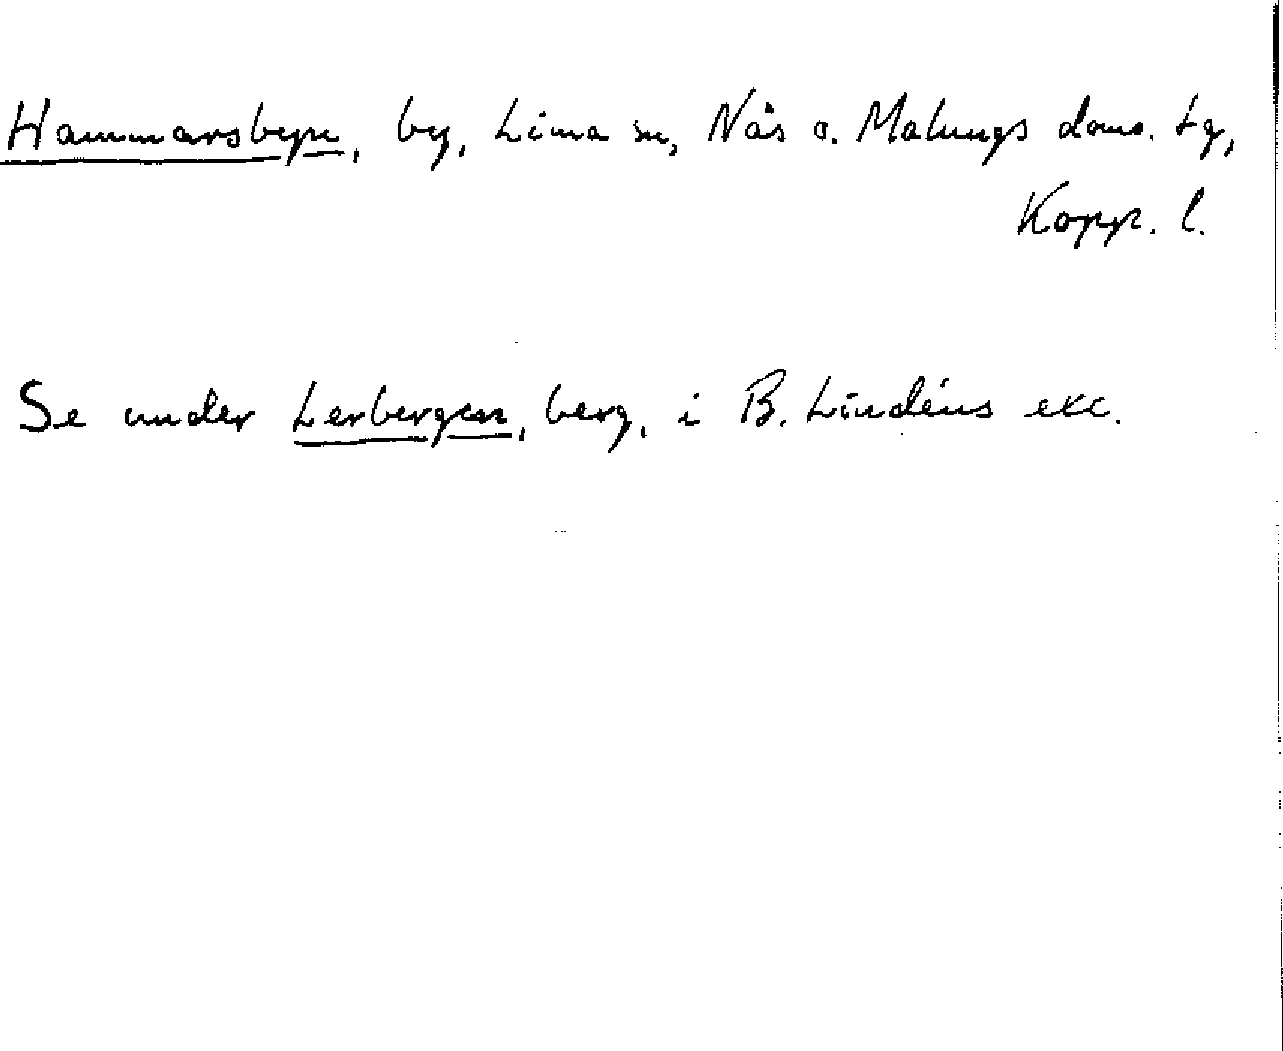 Hammarsbyn, by, Lima sn, Nås o. Malungs doms. tg,
Kopp. l.
Se under Lerbergen, berg, i B. Lindéns exc.